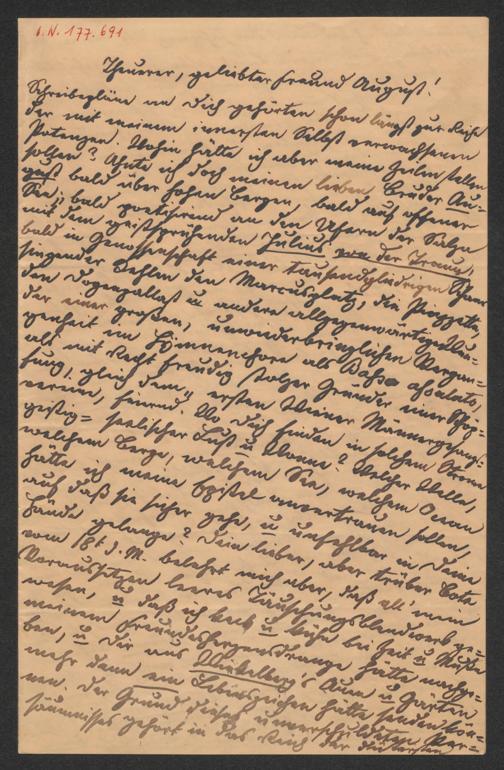 I. N. 177.691
Theuerer, geliebter Freund August!
Schreibepläne an Dich gehörten schon längst zur Reihe
der mit meinem innersten Selbst verwachsenen
Potenzen. Wohin hätte ich aber meine Zeilen stellen
sollen? Ahnte ich doch meinen lieben Bruder Au-
gust bald über hohen Bergen, bald auf offener
See; bald, poetisirend an den Ufern der Salza
mit dem geistsprühenden Julius von der Traun,
bald in Genossenschaft einer tausendgliedrigen Schaar
singender Kehlen den Marcusplatz, die Piazzetta,
den Dogenpallast u andere allgegenwärtige
der einer großen, unwiederbringlichen Vergan-
genheit im Hymnenchore als Basso
als mit Recht freudig stolzer Gründer einer Schöp-
fung, gleich dem "ersten Wiener Männergesang-
verein, feiernd. Wo Dich finden in solchem Strome
geistig-seelischer Lust u Wonne? Welcher Welle,
welchem Berge, welchem See, welchem Ocean
hätte ich meine Epistel anvertrauen sollen,
auf daß sie sicher gehe, u unfehlbar in Deine
Hände gelange? Dein lieber, aber trüber Bote
vom 18t d. M. belehrt mich aber, daß all mein
Voraussetzen leeres Täuschungsblendwerk ge-
wesen, u daß ich keck u kühn bei Zeit u Muße
meinem Freundesherzensdrange hätte nachge-
ben, u Dir aus Nikelberg's Auen u Gärten
mehr denn ein Lebenszeichen hätte senden kön-
nen. Der Grund dieses unverschuldeten Ver-
säumnisses gehört in das Reich der